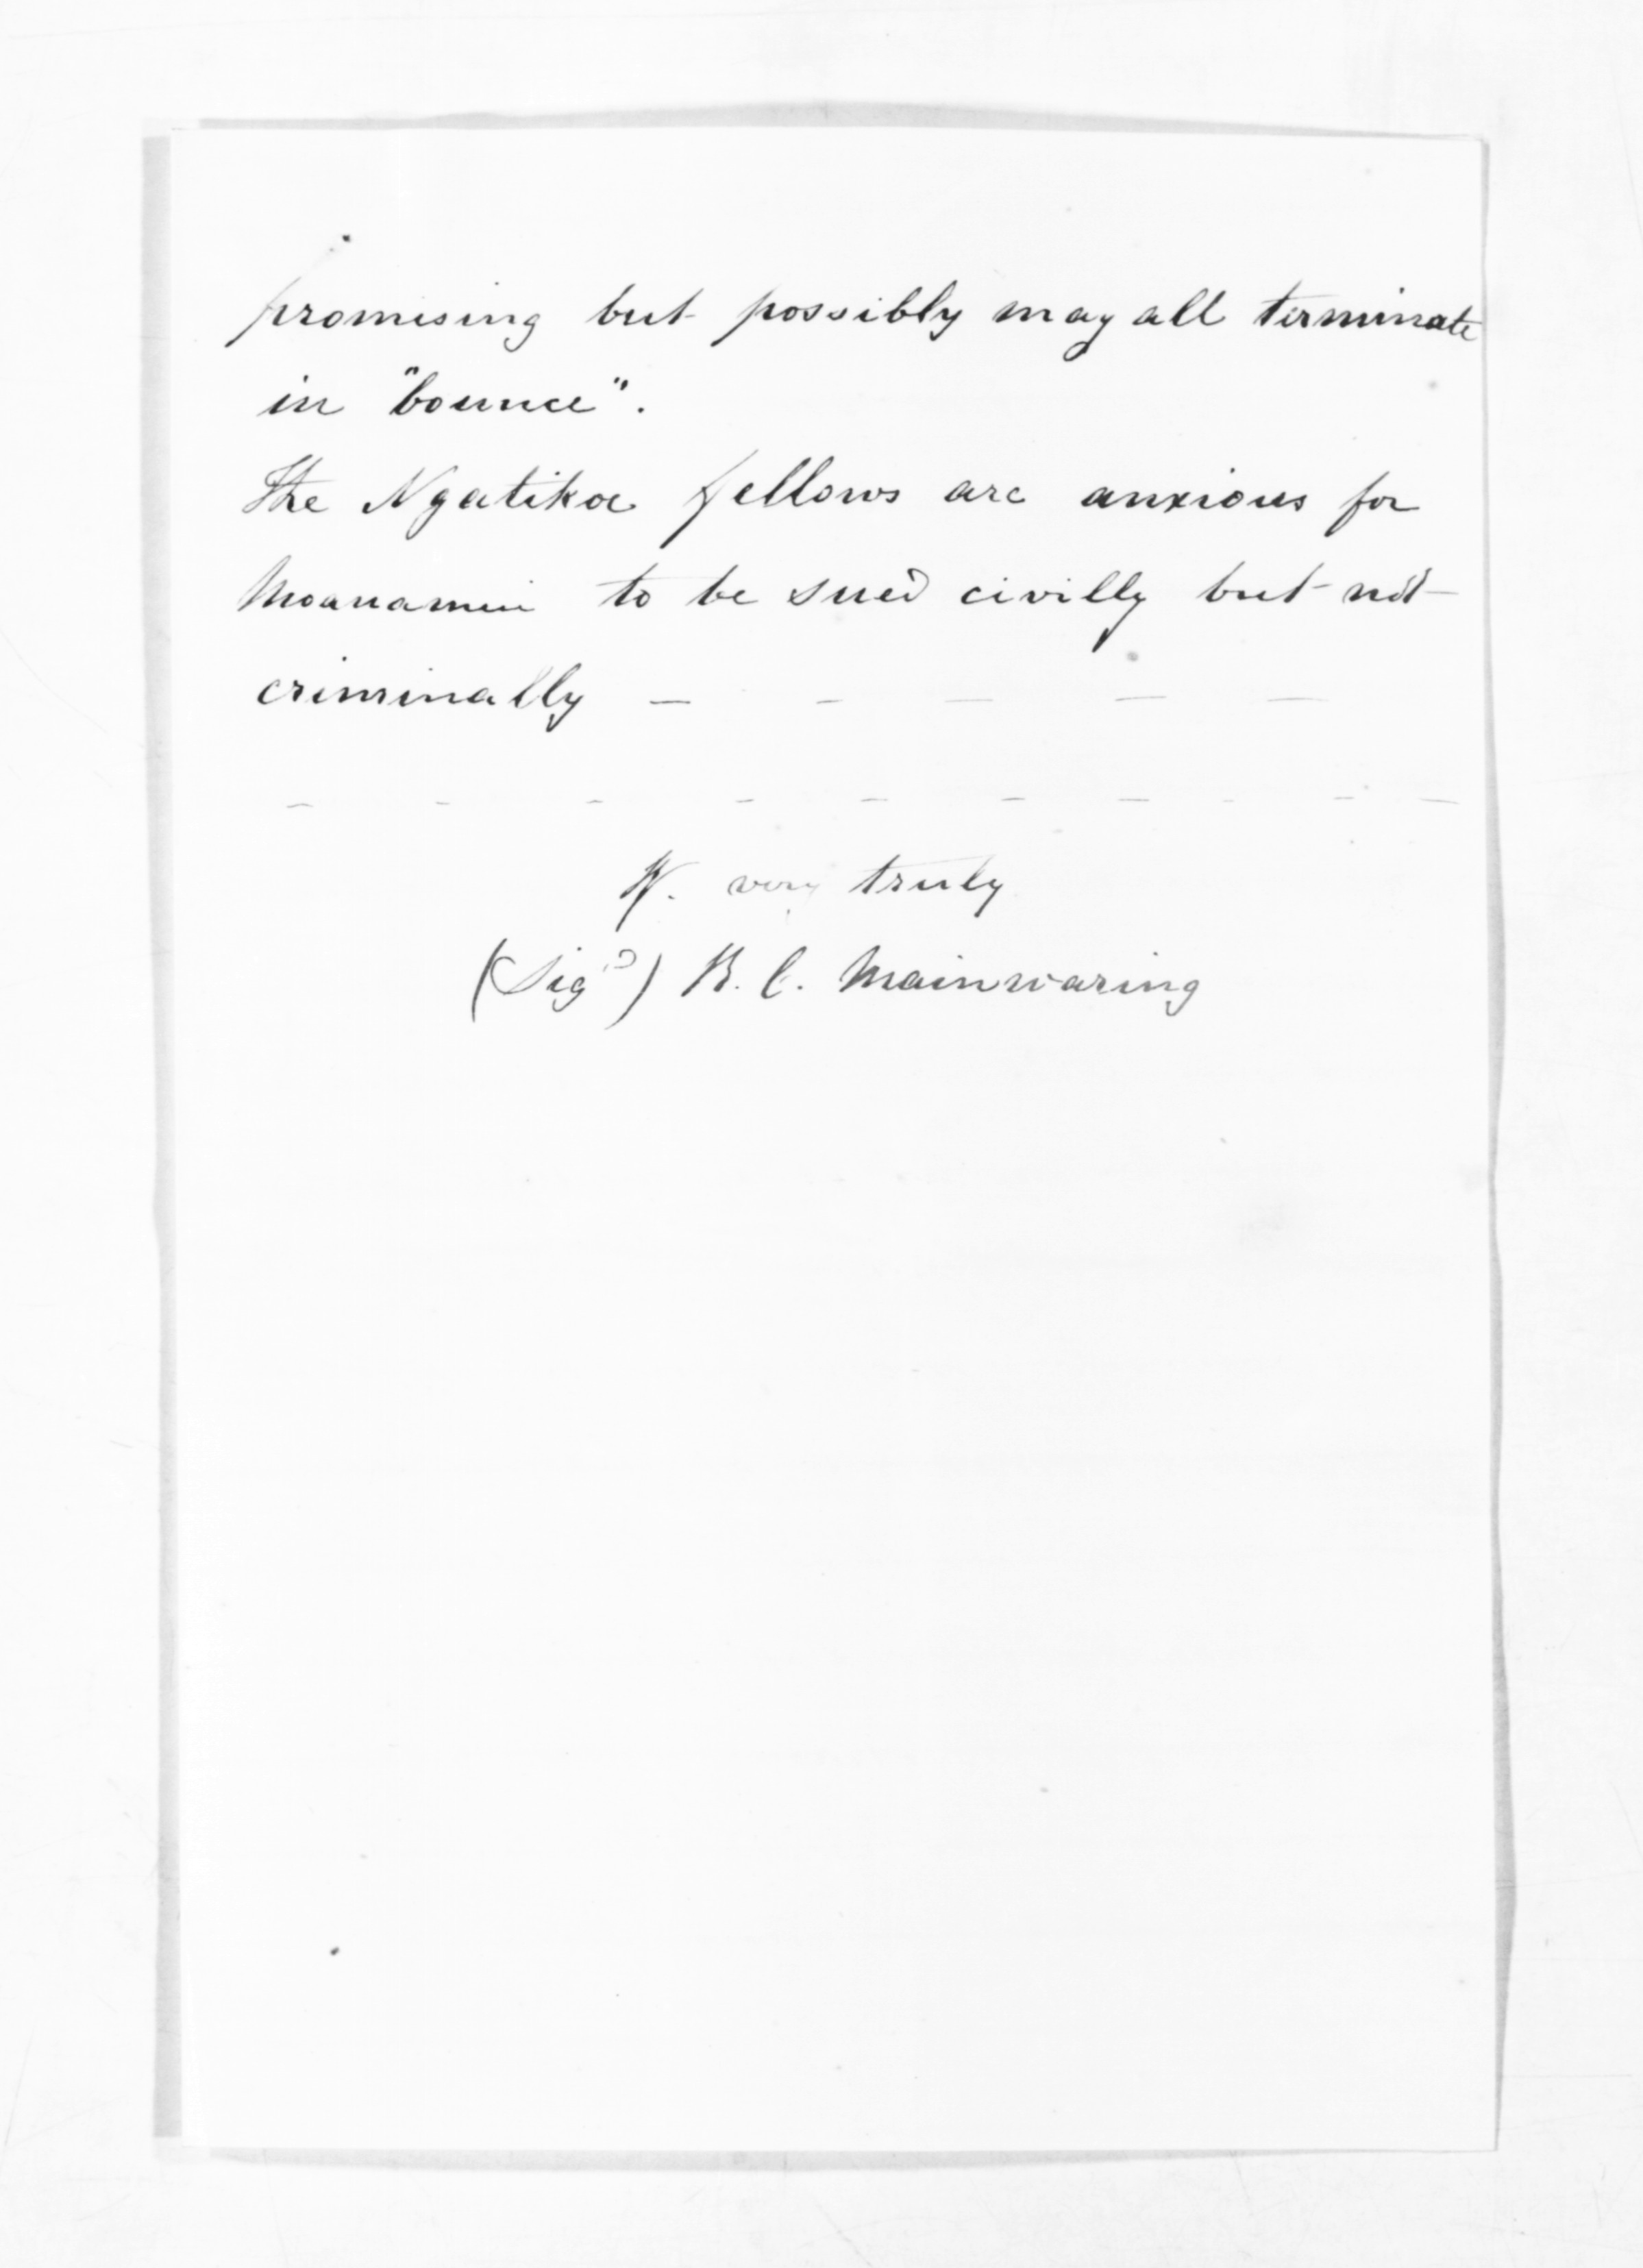 promising but possibly may all terminate
in "bounce".
The Ngatikoe fellows are anxious for
to be sued civilly but not
criminally — — — — —
— — — — — — — — — —
Y. very truly
(Sigd) R. C. Mainwaring